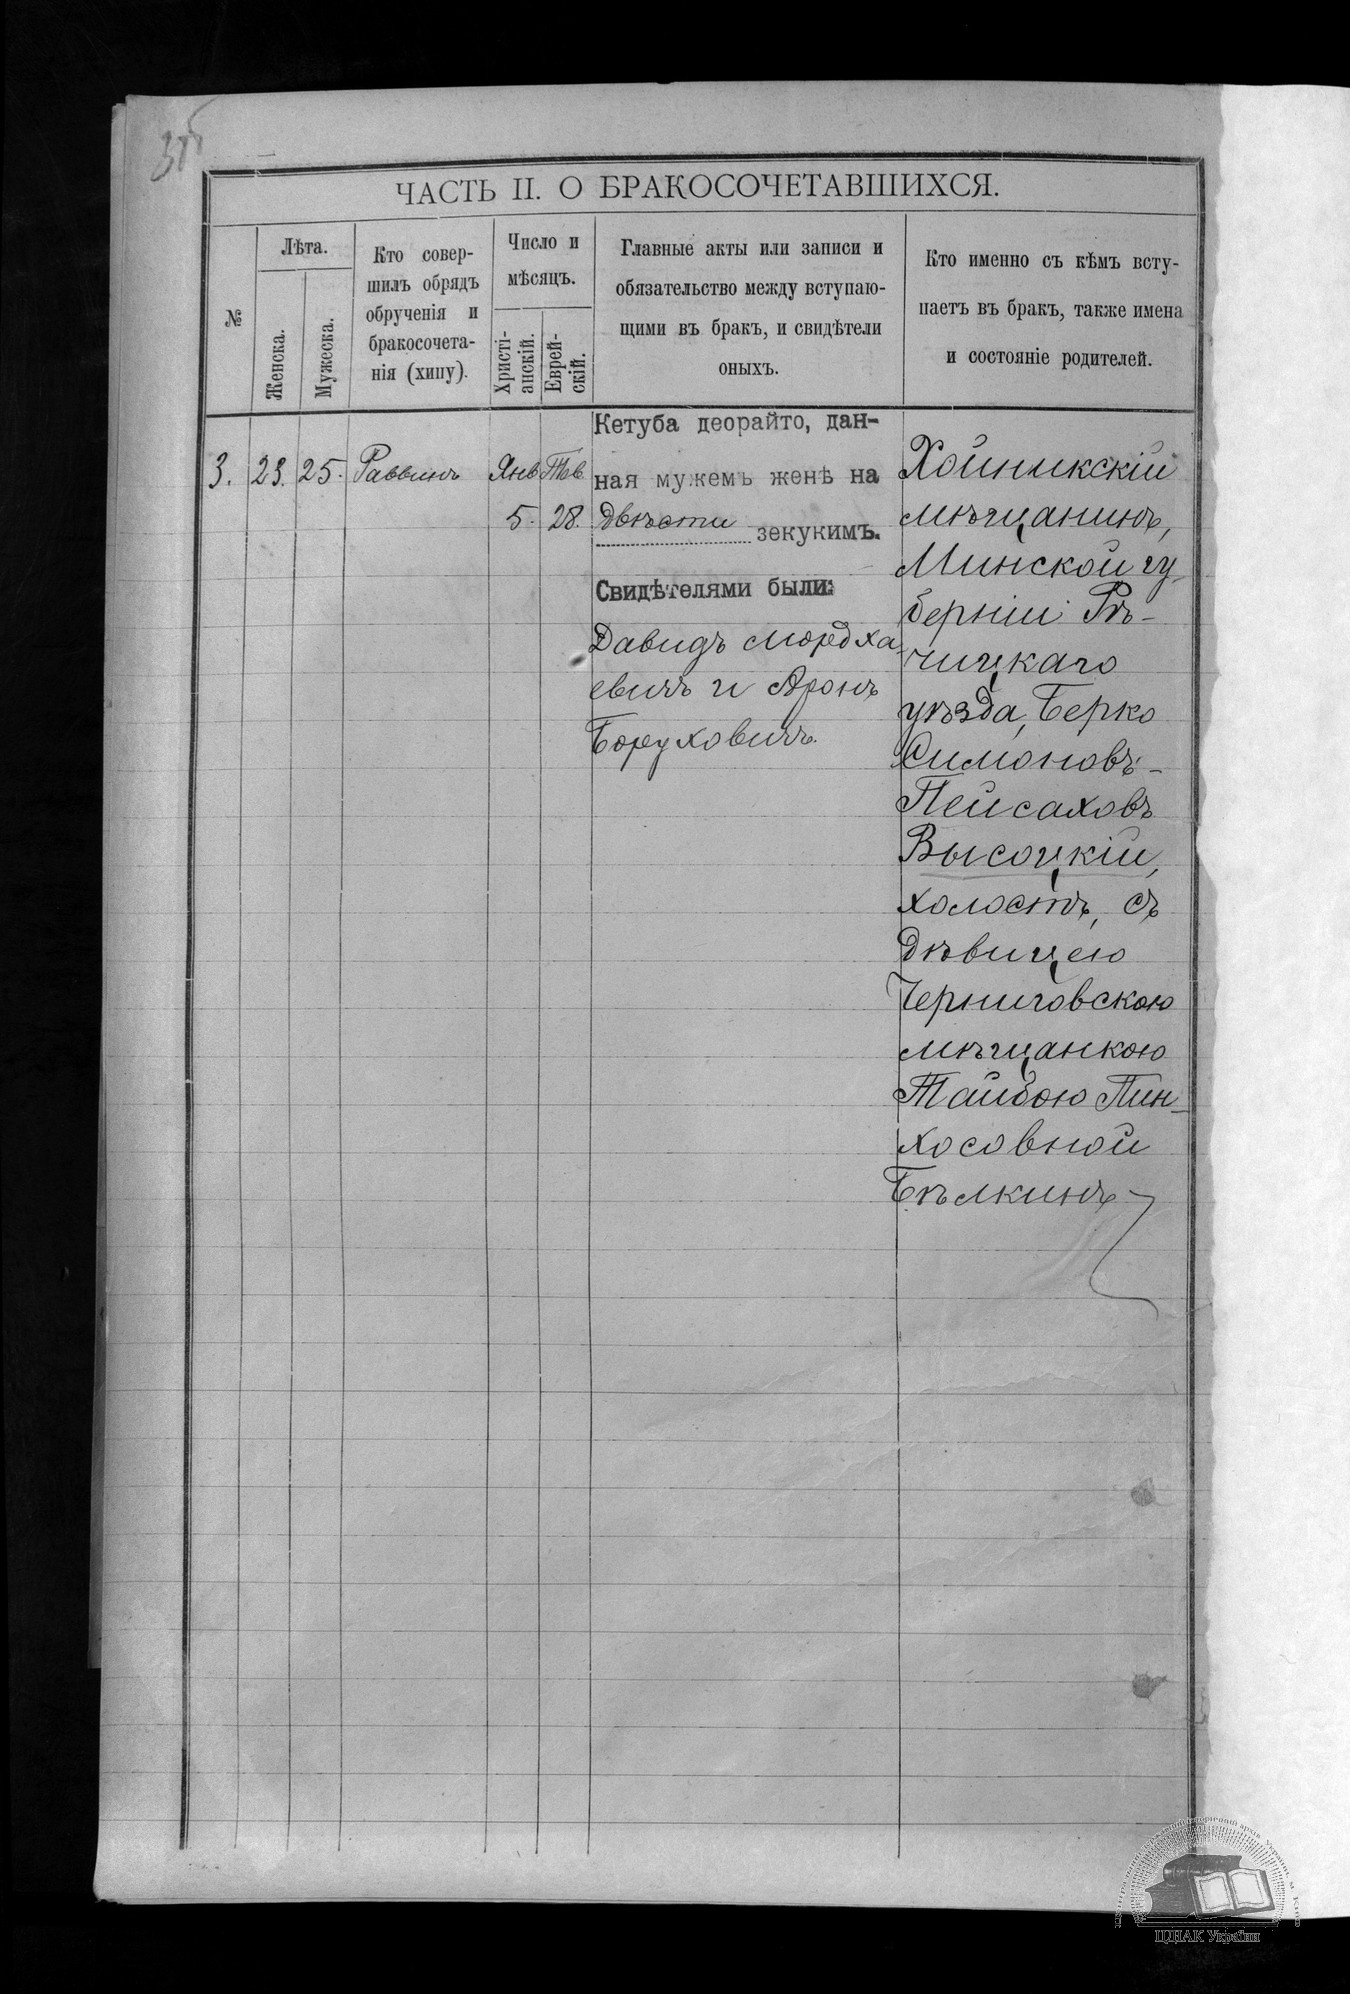 ЧАСТЬ II. О БРАКОСОЧЕТАВШИХСЯ.
№
Лѣта.
Женска.
Мужеска.
Кто совер-
шилъ обрядъ
обрученія и
бракосочета-
нія (хипу).
Число и
мѣсяцъ.
Христі-
анскій.
Еврей-
скій.
Главные акты или записи и
обязательство между вступаю-
щими въ бракъ, и свидѣтели
оныхъ.
Кто именно съ кѣмъ всту-
паетъ въ бракъ, также имена
и состояніе родителей.
3.
23.
25.
Раввинъ
Янв
5.
Тев
28.
Кетуба деорайто, дан-
ная мужемъ женѣ на
двѣсти зекукимъ.
Свидѣтелями были:
Давидъ Мордха-
евичъ и Аронъ
Боруховичъ.
Хойникскій
мѣщанинъ,
Минской гу-
берніи Рѣ-
чицкаго
уѣзда, Берко
Симоновъ-
Пейсаховъ
Высоцкій,
холостъ, съ
дѣвицею
Черниговскою
мѣщанкою
Тайбою Пин-
хосовной
Бѣлкинъ
ЦДІАК України